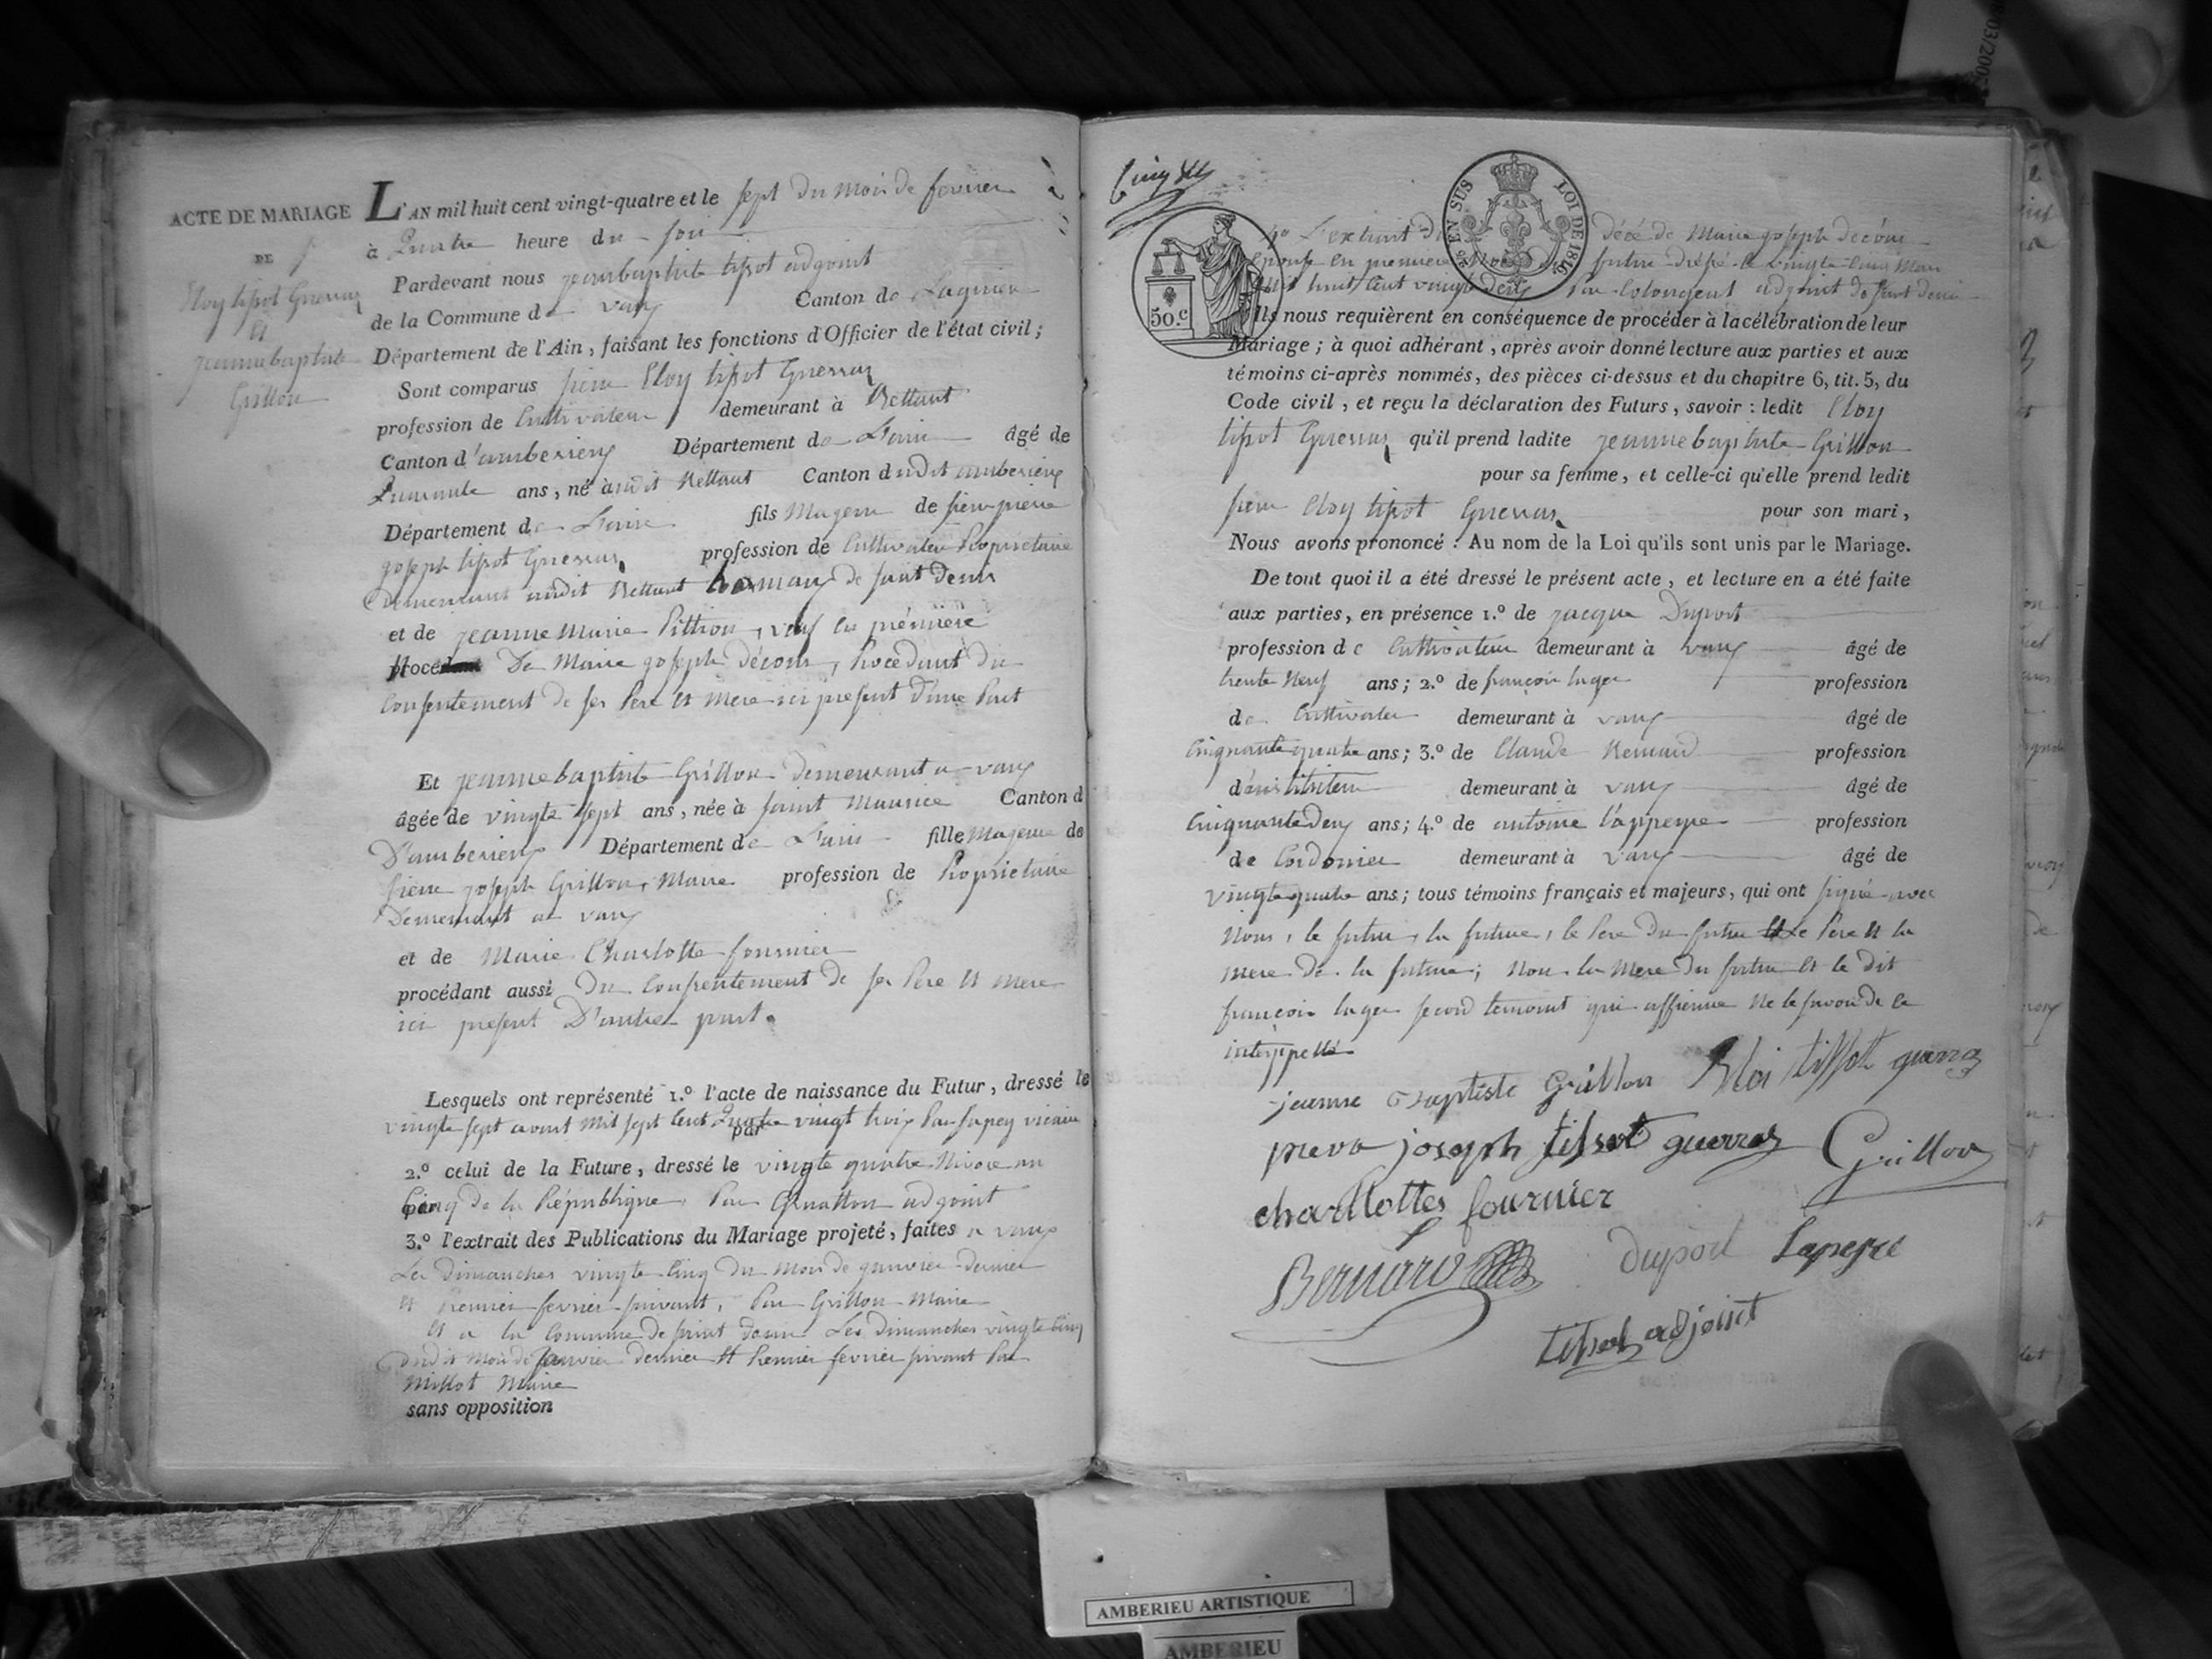 ACTE DE MARIAGE
DE
Eloy tissot Guerraz
et
jeanne baptiste
Grillon
L'AN mil huit cent vingt-quatre et le sept du mois de fevrier
à Quatre heure du soir
Pardevant nous jeanbaptiste tissot adjoint
de la Commune de vaux Canton de Lagnieu
Département de l'Ain, faisant les fonctions d'Officier de l'état civil;
Sont comparus pierre Eloy tissot Guerraz
profession de Cultivateur demeurant à Bettant
Canton d'amberieux Département de L'ain âgé de
Quarante ans, né audit Bettant Canton dudit amberieux
Département de L'ain fils Mageur de pierre
joseph tissot Guerraz profession de Cultivateur Proprietaire
demeurant audit Bettant de saint Denis
et de jeanne Marie Pittion, veuf en première
De Marie joseph décour, Procédant du
Consentement de ses Pere et Mere ici present d'une Part
Et jeanne baptiste Grillon demeurant a vaux
âgée de vingte sept ans, née à saint Maurice Canton
D'amberieux Département de L'ain fille Mageure de
pierre joseph Grillon, Maire profession de Proprietaire
Demeurant a vaux
et de Marie Charlotte fournier
procédant aussi du Consentement de ses Pere et Mere
ici present D'autre part.
Lesquels ont représenté 1.º l'acte de naissance du Futur, dressé le
vingte sept avout Mil sept Cent Quatre vingt trois par vicaire
par
2.º celui de la Future, dressé le vingte quatre Nivose an
Cinq de la République, Par adjoint
3.º l'extrait des Publications du Mariage projeté, faites a vaux
Les dimanches vingte Cinq du mois de janvier dernier
et Premier fevrier suivant, Par Grillon Maire
et a la Commune de saint denis Les dimanches vingte Cinq
dudit mois de janvier dernier et Premier fevrier suivant Par
Millot Maire
sans opposition
50.c
EN SUS
LOI DE 1816
4º L'extrait de décé de Marie joseph decour
Epouse en premiere du futur
Mil huit Cent vingt deux Par Colongeat adjoint de saint denis
Ils nous requièrent en conséquence de procéder à la célébration de leur
Mariage; à quoi adhérant, après avoir donné lecture aux parties et aux
témoins ci-après nommés, des pièces ci-dessus et du chapitre 6, tit. 5, du
Code civil, et reçu la déclaration des Futurs, savoir: ledit Eloy
tissot Guerraz qu'il prend ladite jeanne baptiste Grillon
pour sa femme, et celle-ci qu'elle prend ledit
pierre Eloy tissot Guerraz pour son mari,
Nous avons prononcé: Au nom de la Loi qu'ils sont unis par le Mariage.
De tout quoi il a été dressé le présent acte, et lecture en a été faite
aux parties, en présence 1.º de jacque Duport
profession de Cultivateur demeurant à vaux âgé de
trente Neuf ans; 2.º de françois profession
de Cultivateur demeurant à vaux âgé de
Cinquante quatre ans; 3.º de Claude Bernard profession
d'institeteur demeurant à vaux âgé de
Cinquante deux ans; 4.º de antoine profession
de Cordonier demeurant à vaux âgé de
vingte quatre ans; tous témoins français et majeurs, qui ont signé avec
Nous, le futur, la future, le Pere du futur Le Pere et la
mere de la future; Non la Mere du futur et le dit
françois second temoint qui affirme Ne le savoir de ce
interppellé
jeanne Baptiste Grillon Eloi tissot guerraz
joseph tissot guerraz Grillon
charllottes fournier
Bernard duport Lapeyre
tissot adjoint
AMBERIEU ARTISTIQUE
AMBERIEU